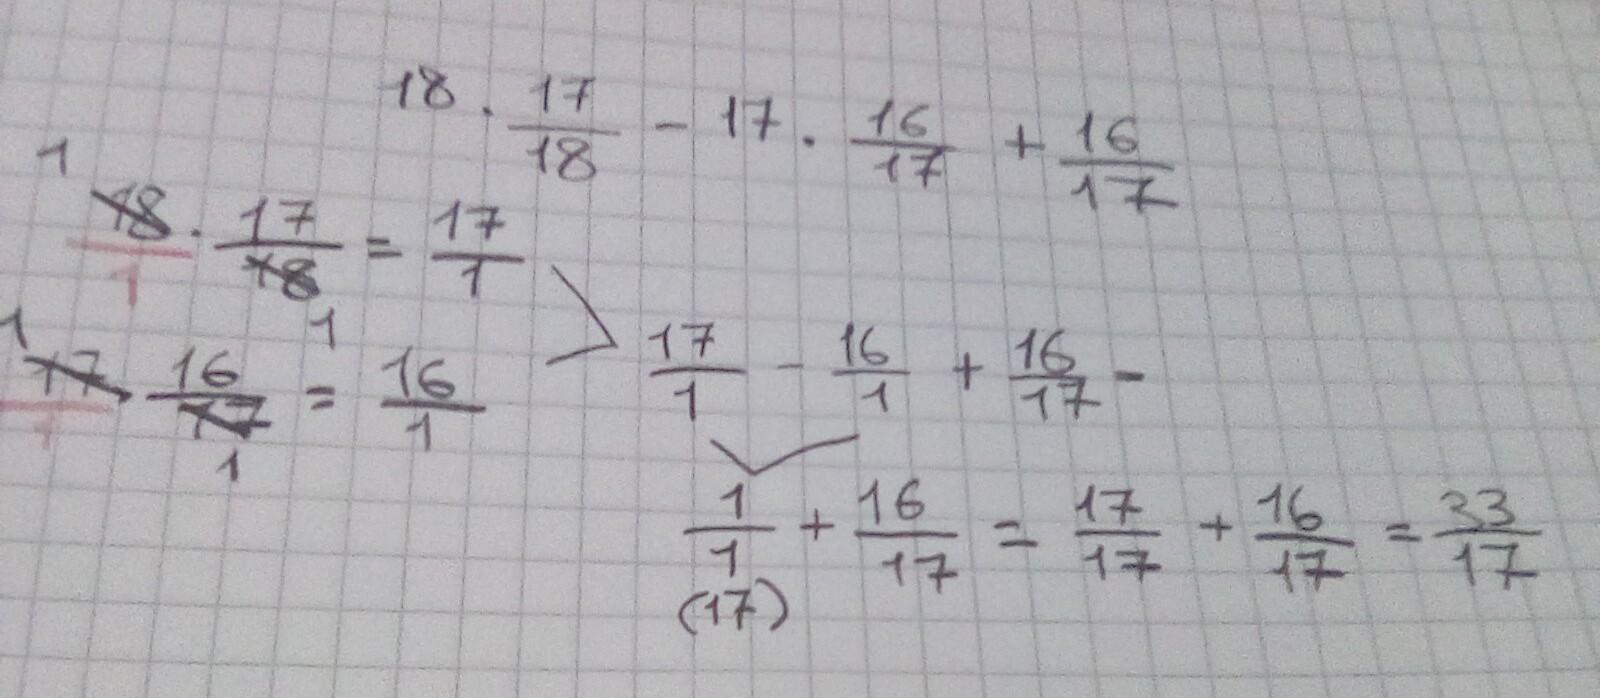 18 · 17/18 - 17 · 16/17 + 16/17
1
18/1 · 17/18 = 17/1
1
1
17/1 16/17 = 16/1
1
17/1 - 16/1 + 16/17 -
1/1 + 16/17 = 17/17 + 16/17 = 33/17
(17)